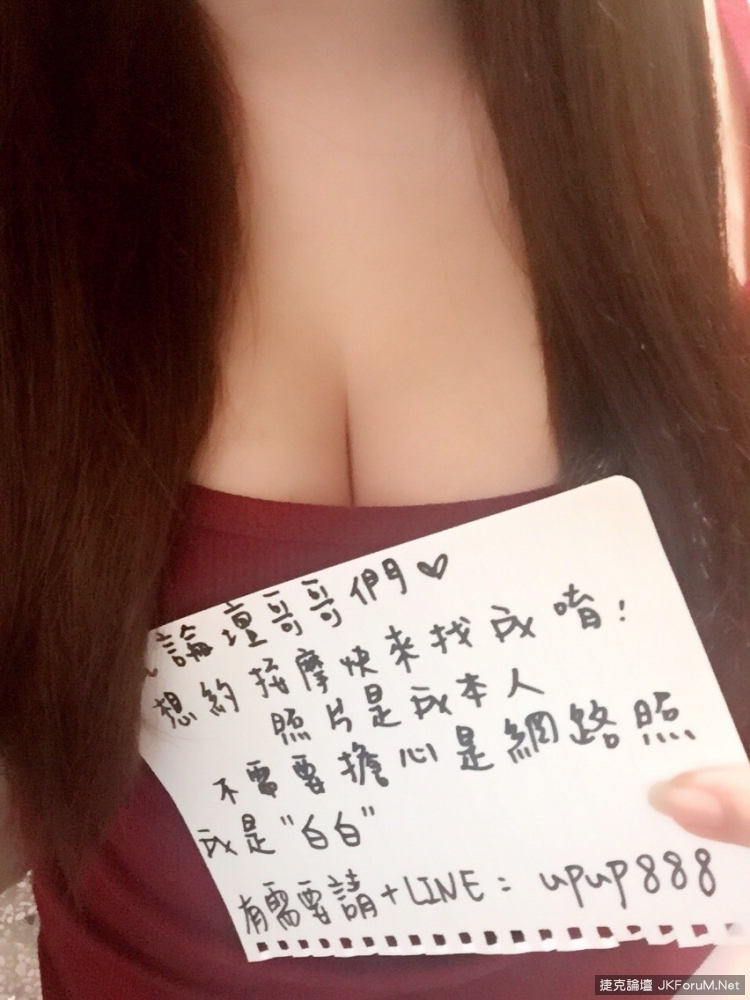 論壇哥哥們♡
想約按摩快來找我唷!
照片是我本人
不需要擔心是網路照
我是"白白"
有需要請+LINE: upup888
捷克論壇 JKForuM.Net